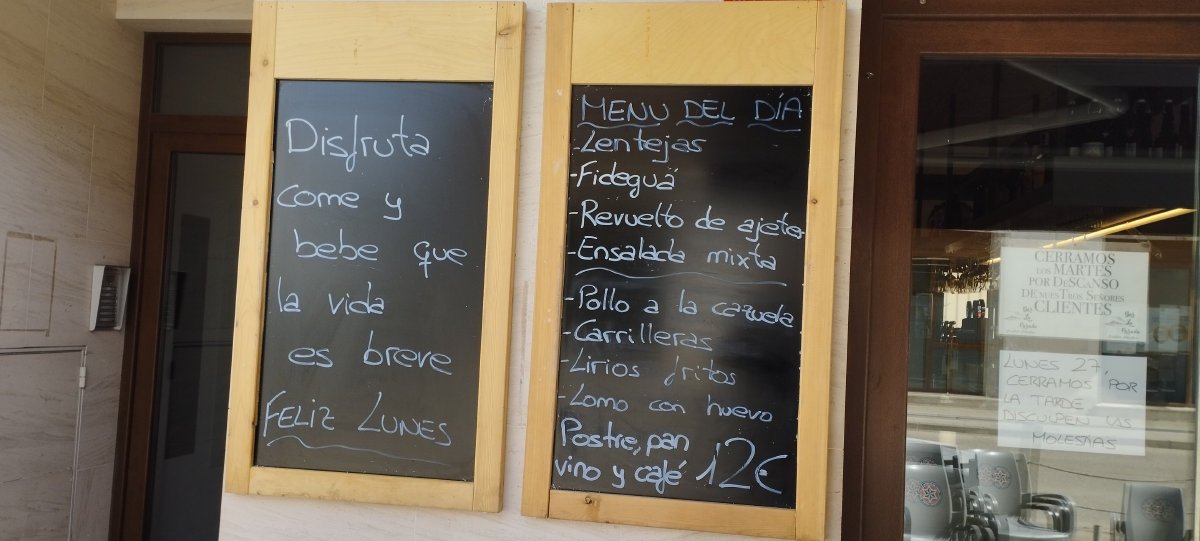 Disfruta
come y
bebe que
la vida
es breve
FELIZ LUNES
MENU DEL DÍA
-Lentejas
-Fideguá
-Revuelto de ajetes
-Ensalada mixta
-Pollo a la cazuela
-Carrilleras
-Lirios fritos
-Lomo con huevo
Postre, pan
vino y café 12€
CERRAMOS
LOS MARTES
POR DESCANSO
DE NUESTROS SEÑORES
CLIENTES
LUNES 27,
CERRAMOS POR
LA TARDE
DISCULPEN LAS
MOLESTIAS